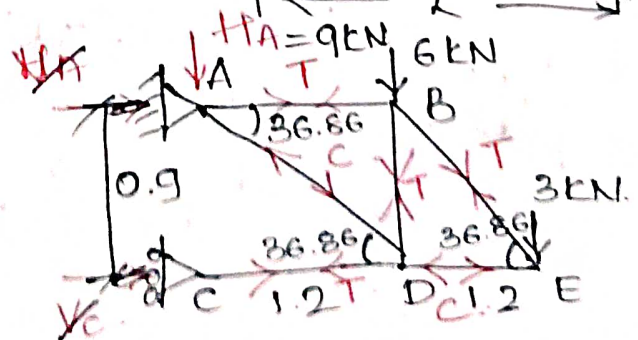 HA
HA=9KN
6KN
A
T
B
36.86
C
T
T
0.9
3KN
36.86
36.86
Vc
C
1.2
T
D
C
1.2
E